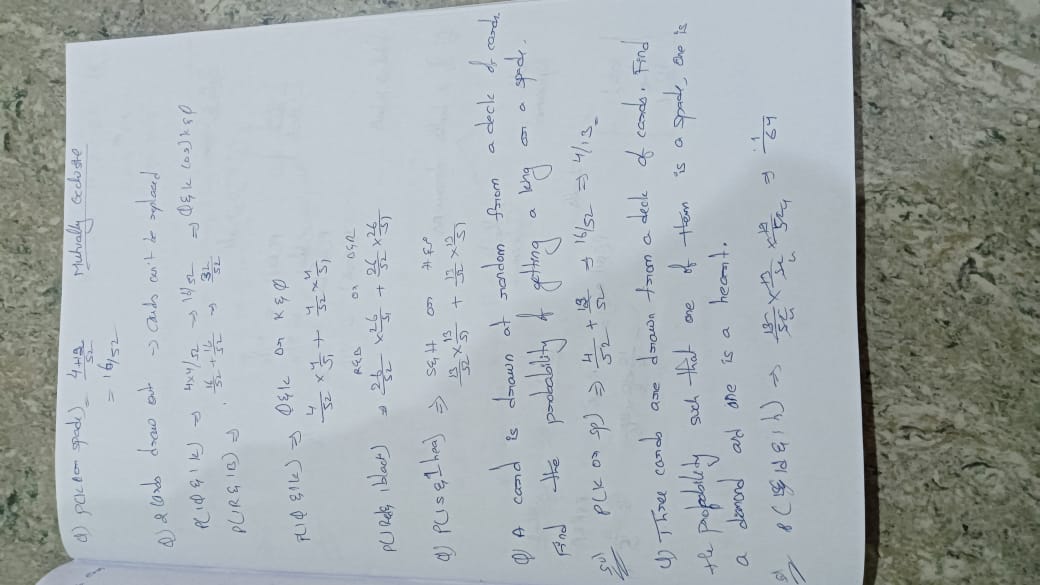 Q) P(K or spade) = 4+13/52 Mutually Exclusive
= 16/52
Q) 2 Cards draw out → Cards can't be replaced
P(1Q & 1K) → 4×4/52 → 16/52 → Q & K (or) K & Q
P(1R & 1B) → 16/52 + 16/52 → 32/52
P(1Q & 1K) ⇒ Q & K or K & Q
4/52 × 4/51 + 4/52 × 4/51
R&B or B&R
P(1Red & 1black) → 26/52 × 26/51 + 26/52 × 26/51
Q) P(1S & 1hea) ⇒ S & H or H & S
13/52 × 13/51 + 13/52 × 13/51
Q) A card is drawn at random from a deck of cards
Find the probability of getting a king or a spade.
Sol) P(K or sp) ⇒ 4/52 + 13/52 ⇒ 16/52 ⇒ 4/13
4) Three cards are drawn from a deck of cards. Find
the probability such that one of them is a spade, one is
a demond and one is a heart.
P(1S & 1d & 1h) → 13/52 × 13/52 × 13/52 ⇒ 1/64